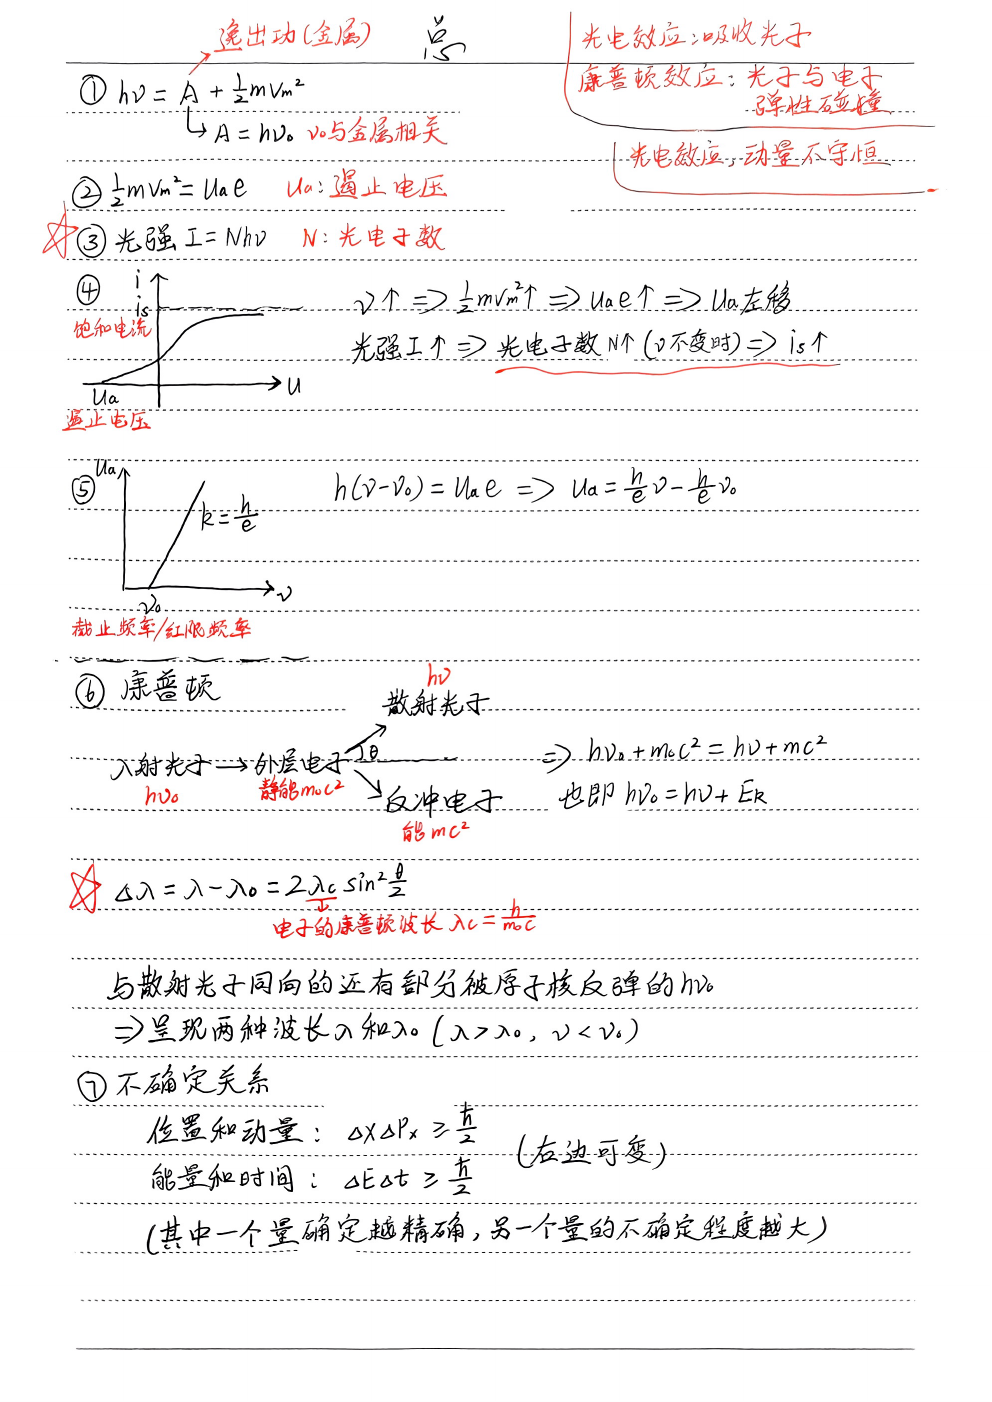 逸出功(金属)
总
光电效应:吸收光子
康普顿效应:光子与电子
弹性碰撞
① hν = A + ½mVm²
A = hν₀ ν₀与金属相关
光电效应,动量不守恒
② ½mVm² = Ua e Ua:遏止电压
③ 光强 I = Nhν N:光电子数
④
i
is
饱和电流
Ua
遏止电压
U
ν↑ ⇒ ½mVm²↑ ⇒ Ua e↑ ⇒ Ua左移
光强I↑ ⇒ 光电子数N↑(ν不变时) ⇒ is↑
⑤
Ua
k = h/e
ν₀
ν
截止频率/红限频率
h(ν-ν₀) = Ua e ⇒ Ua = h/e ν - h/e ν₀
⑥ 康普顿
hν
散射光子
入射光子 → 外层电子 θ
hν₀ 静能m₀c²
反冲电子
能mc²
⇒ hν₀ + m₀c² = hν + mc²
也即 hν₀ = hν + Ek
Δλ = λ - λ₀ = 2λc sin² θ/2
电子的康普顿波长 λc = h/m₀c
与散射光子同向的还有部分被原子核反弹的hν₀
⇒ 呈现两种波长λ和λ₀(λ > λ₀, ν < ν₀)
⑦ 不确定关系
位置和动量: ΔxΔPx ≥ ħ/2
能量和时间: ΔEΔt ≥ ħ/2
(右边可变)
(其中一个量确定越精确,另一个量的不确定程度越大)